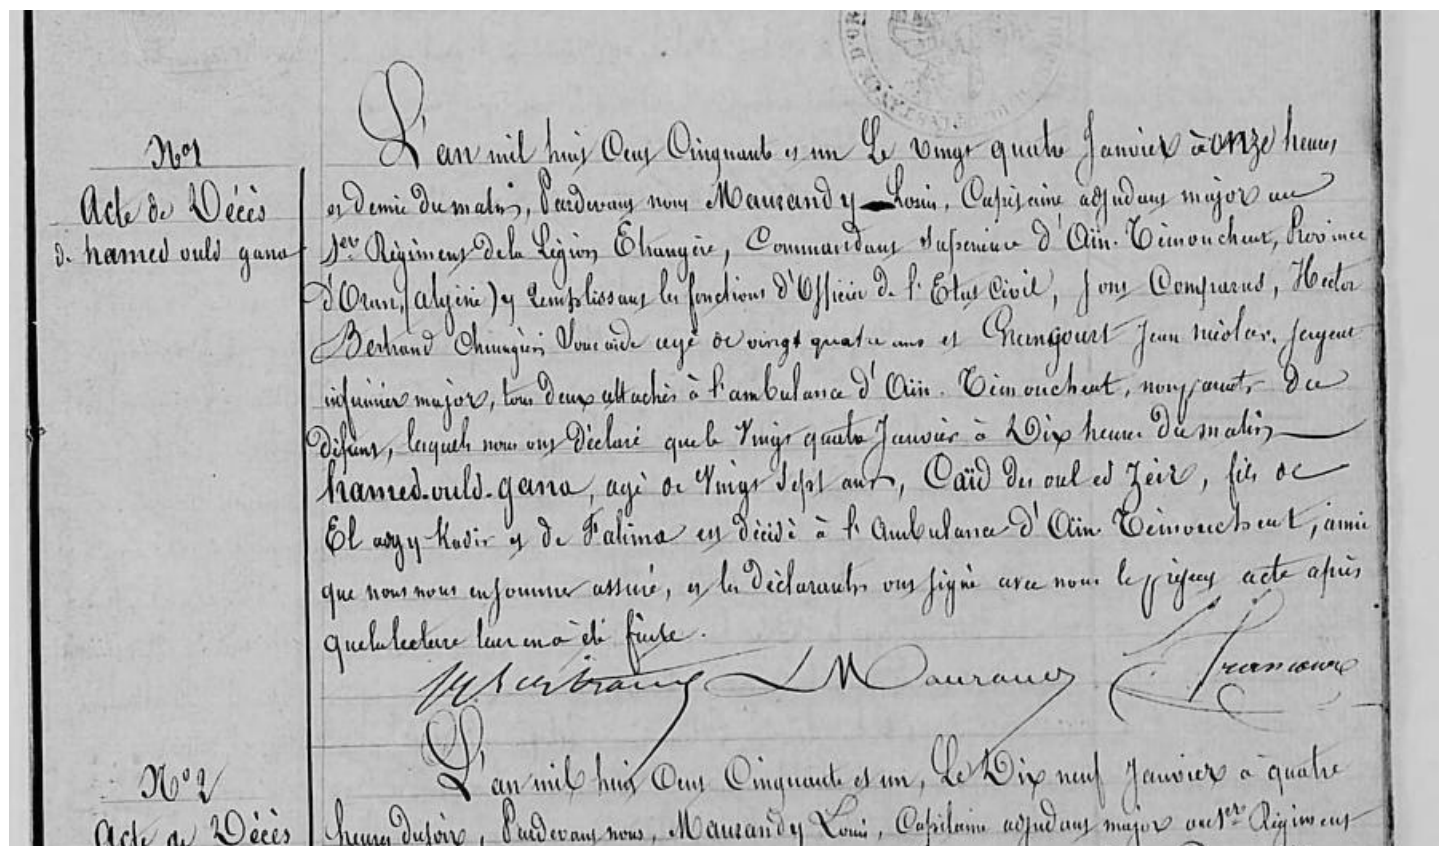 L'an mil huit Cent Cinquante et un Le vingt quatre Janvier à onze heures
N° 1
et demie du matin, Pardevant nous Maurandy Louis, Capitaine adjudant major au
Acte de Décès
1er Régiment de la Légion Etrangère, Commandant Supérieur d'Aïn-Témouchent, Province
de hamed ould gana
d'Oran, (algérie) y remplissant les fonctions d'Officier de l'Etat Civil, sont Comparus, Hector
Bertrand Chirurgien Sous aide agé de vingt quatre ans et Jean nicolas, sergent
infirmier major, tous deux attachés à l'ambulance d'Aïn-Témouchent, non parents du
défunt, lesquels nous ont déclaré que le Vingt quatre Janvier à Dix heures du matin
hamed-ould-gana, agé de Vingt Sept ans, Caïd des ouled Zeir, fils de
El Kadir et de Fatima est décédé à l'ambulance d'Aïn Témouchent, ainsi
que nous nous en sommes assuré, et les déclarants ont signé avec nous le présent acte après
que la lecture leur en a été faite.
Bertrand L Maurandy
N° 2
L'an mil huit Cent Cinquante et un, Le Dix neuf Janvier à quatre
Acte de Décès
heures du soir, Pardevant nous, Maurandy Louis, Capitaine adjudant major au 1er Régiment